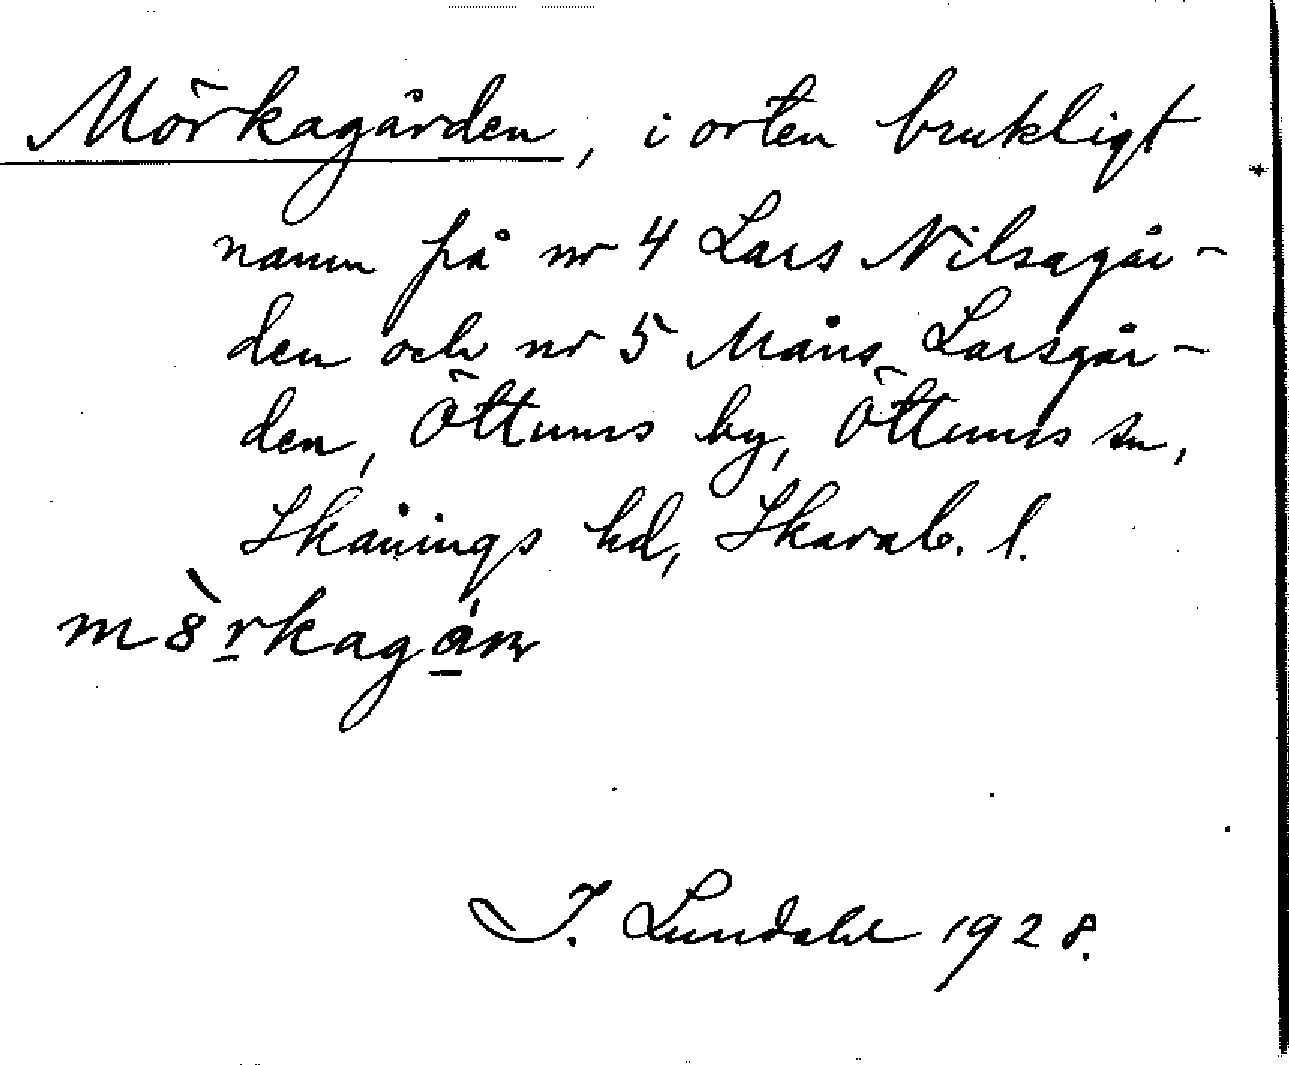 Mörkagården, i orten brukligt
namn på nr 4 Lars Nilsagår-
den och nr 5 Måns Larsgår-
den, Öttums by, Öttums sn,
Skånings hd, Skarab. l.
I. Lundahl 1928.